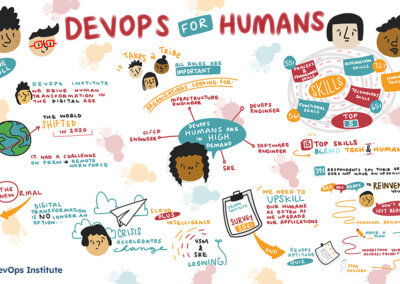 DEVOPS FOR HUMANS
DEVOPS INSTITUTE
WE DRIVE HUMAN
TRANSFORMATION IN
THE DIGITAL AGE
THE WORLD
SHIFTED
IN 2020
IT HAD A CHALLENGE
ON FREAK → REMOTE
WORK FORCE
IT TAKES A TRIBE
ALL ROLES ARE
IMPORTANT
ORGANIZATIONS LOOKING FOR:
INFRASTRUCTURE
ENGINEER
CI/CD
ENGINEER
DEVOPS
ENGINEER
DEVOPS
HUMANS ARE
IN HIGH
DEMAND
SOFTWARE
ENGINEER
SRE
PROCESS &
FRAMEWORK
SKILLS
AUTOMATION
SKILLS
SKILLS
TECHNOLOGY
SKILLS
FUNCTIONAL
SKILLS
TOP
5
TOP SKILLS
BLEND TECH & HUMAN
THE NEW NORMAL
DIGITAL
TRANSFORMATION
IS NO LONGER AN
OPTION
CRISIS
ACCELERATES
change
CLOUD
PLUS
INTELLIGENCE
VSM
&
SRE
GROWING
SURVEY
WE NEED TO
UPSKILL
OUR HUMANS
AS OFTEN AS
WE UPGRADE
OUR APPLICATIONS
AND
DEVOPS
APTITUDE
QUIZ
REINVEN
DON'T
LEFT BEHIN
MAKE A
PLAN
STAY
FOCUSED
DevOps Institute